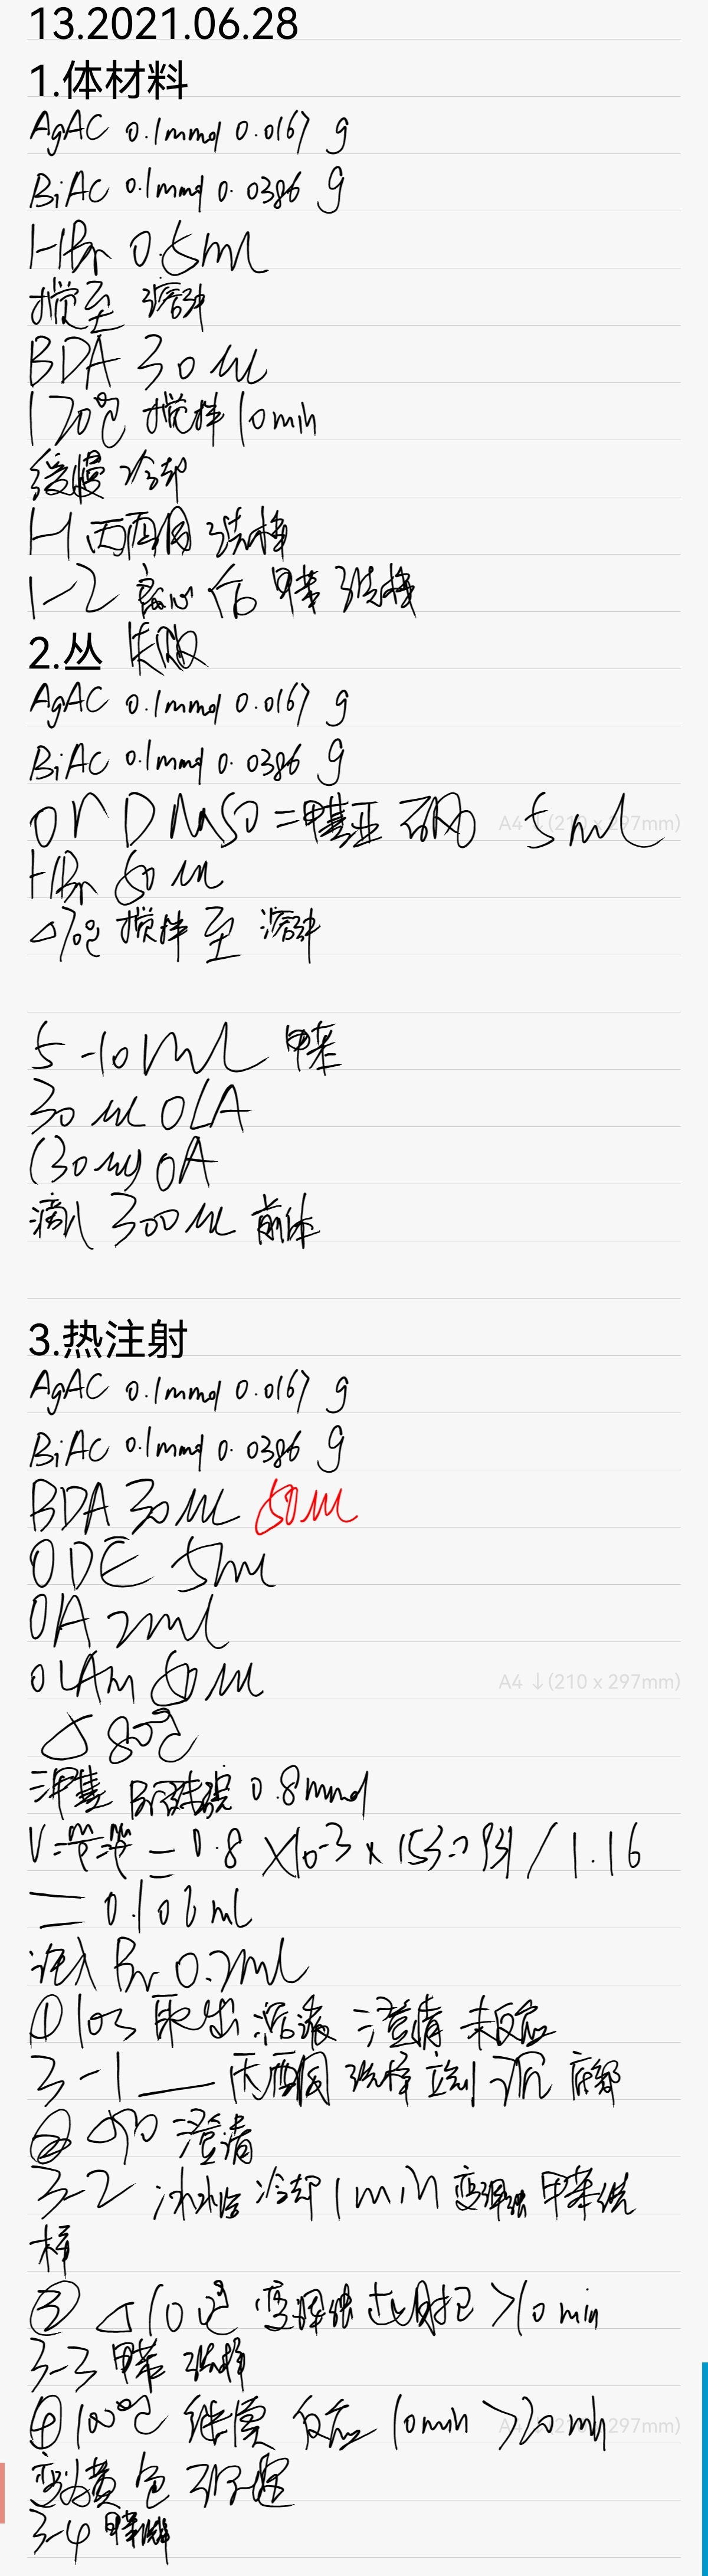 13.2021.06.28
1.体材料
AgAC 0.1mmol 0.0167 g
BiAC 0.1mmol 0.0386 g
HBr 0.5ml
搅至 溶解
BDA 30 ul
120℃ 搅拌 10min
缓慢 冷却
1-1 丙酮 洗样
1-2 离心后 甲苯 洗样
2.丛 失败
AgAC 0.1mmol 0.0167 g
BiAC 0.1mmol 0.0386 g
or DMSO 二甲基亚砜 5ml
A4 ↓(210 x 297mm)
HBr 50 ul
△70℃ 搅拌 至 溶解
5-10ml 甲苯
30 ul OLA
(30ul) OA
滴入 300 ul 前体
3.热注射
AgAC 0.1mmol 0.0167 g
BiAC 0.1mmol 0.0386 g
BDA 30ul 50ul
ODE 5ml
OA 2ml
OLAm 50 ul
A4 ↓(210 x 297mm)
△ 80℃
三甲基 Br硅烷 0.8mmol
0.8 ×10-3 × 153.0 / 1.16
= 0.106 ml
注入 Br 0.2ml
① 10s 取出 溶液 澄清 未反应
3-1 — 丙酮 洗样 立刻 沉 底部
② △90 澄清
3-2 冰水浴 冷却 1min 变浑浊 甲苯洗
样
③ △ 变浑浊 >10 min
3-3 甲苯 洗样
④ 100℃ 继续 反应 10min >20min
A4 ↓(210 x 297mm)
变为黄色
3-4 甲苯洗样